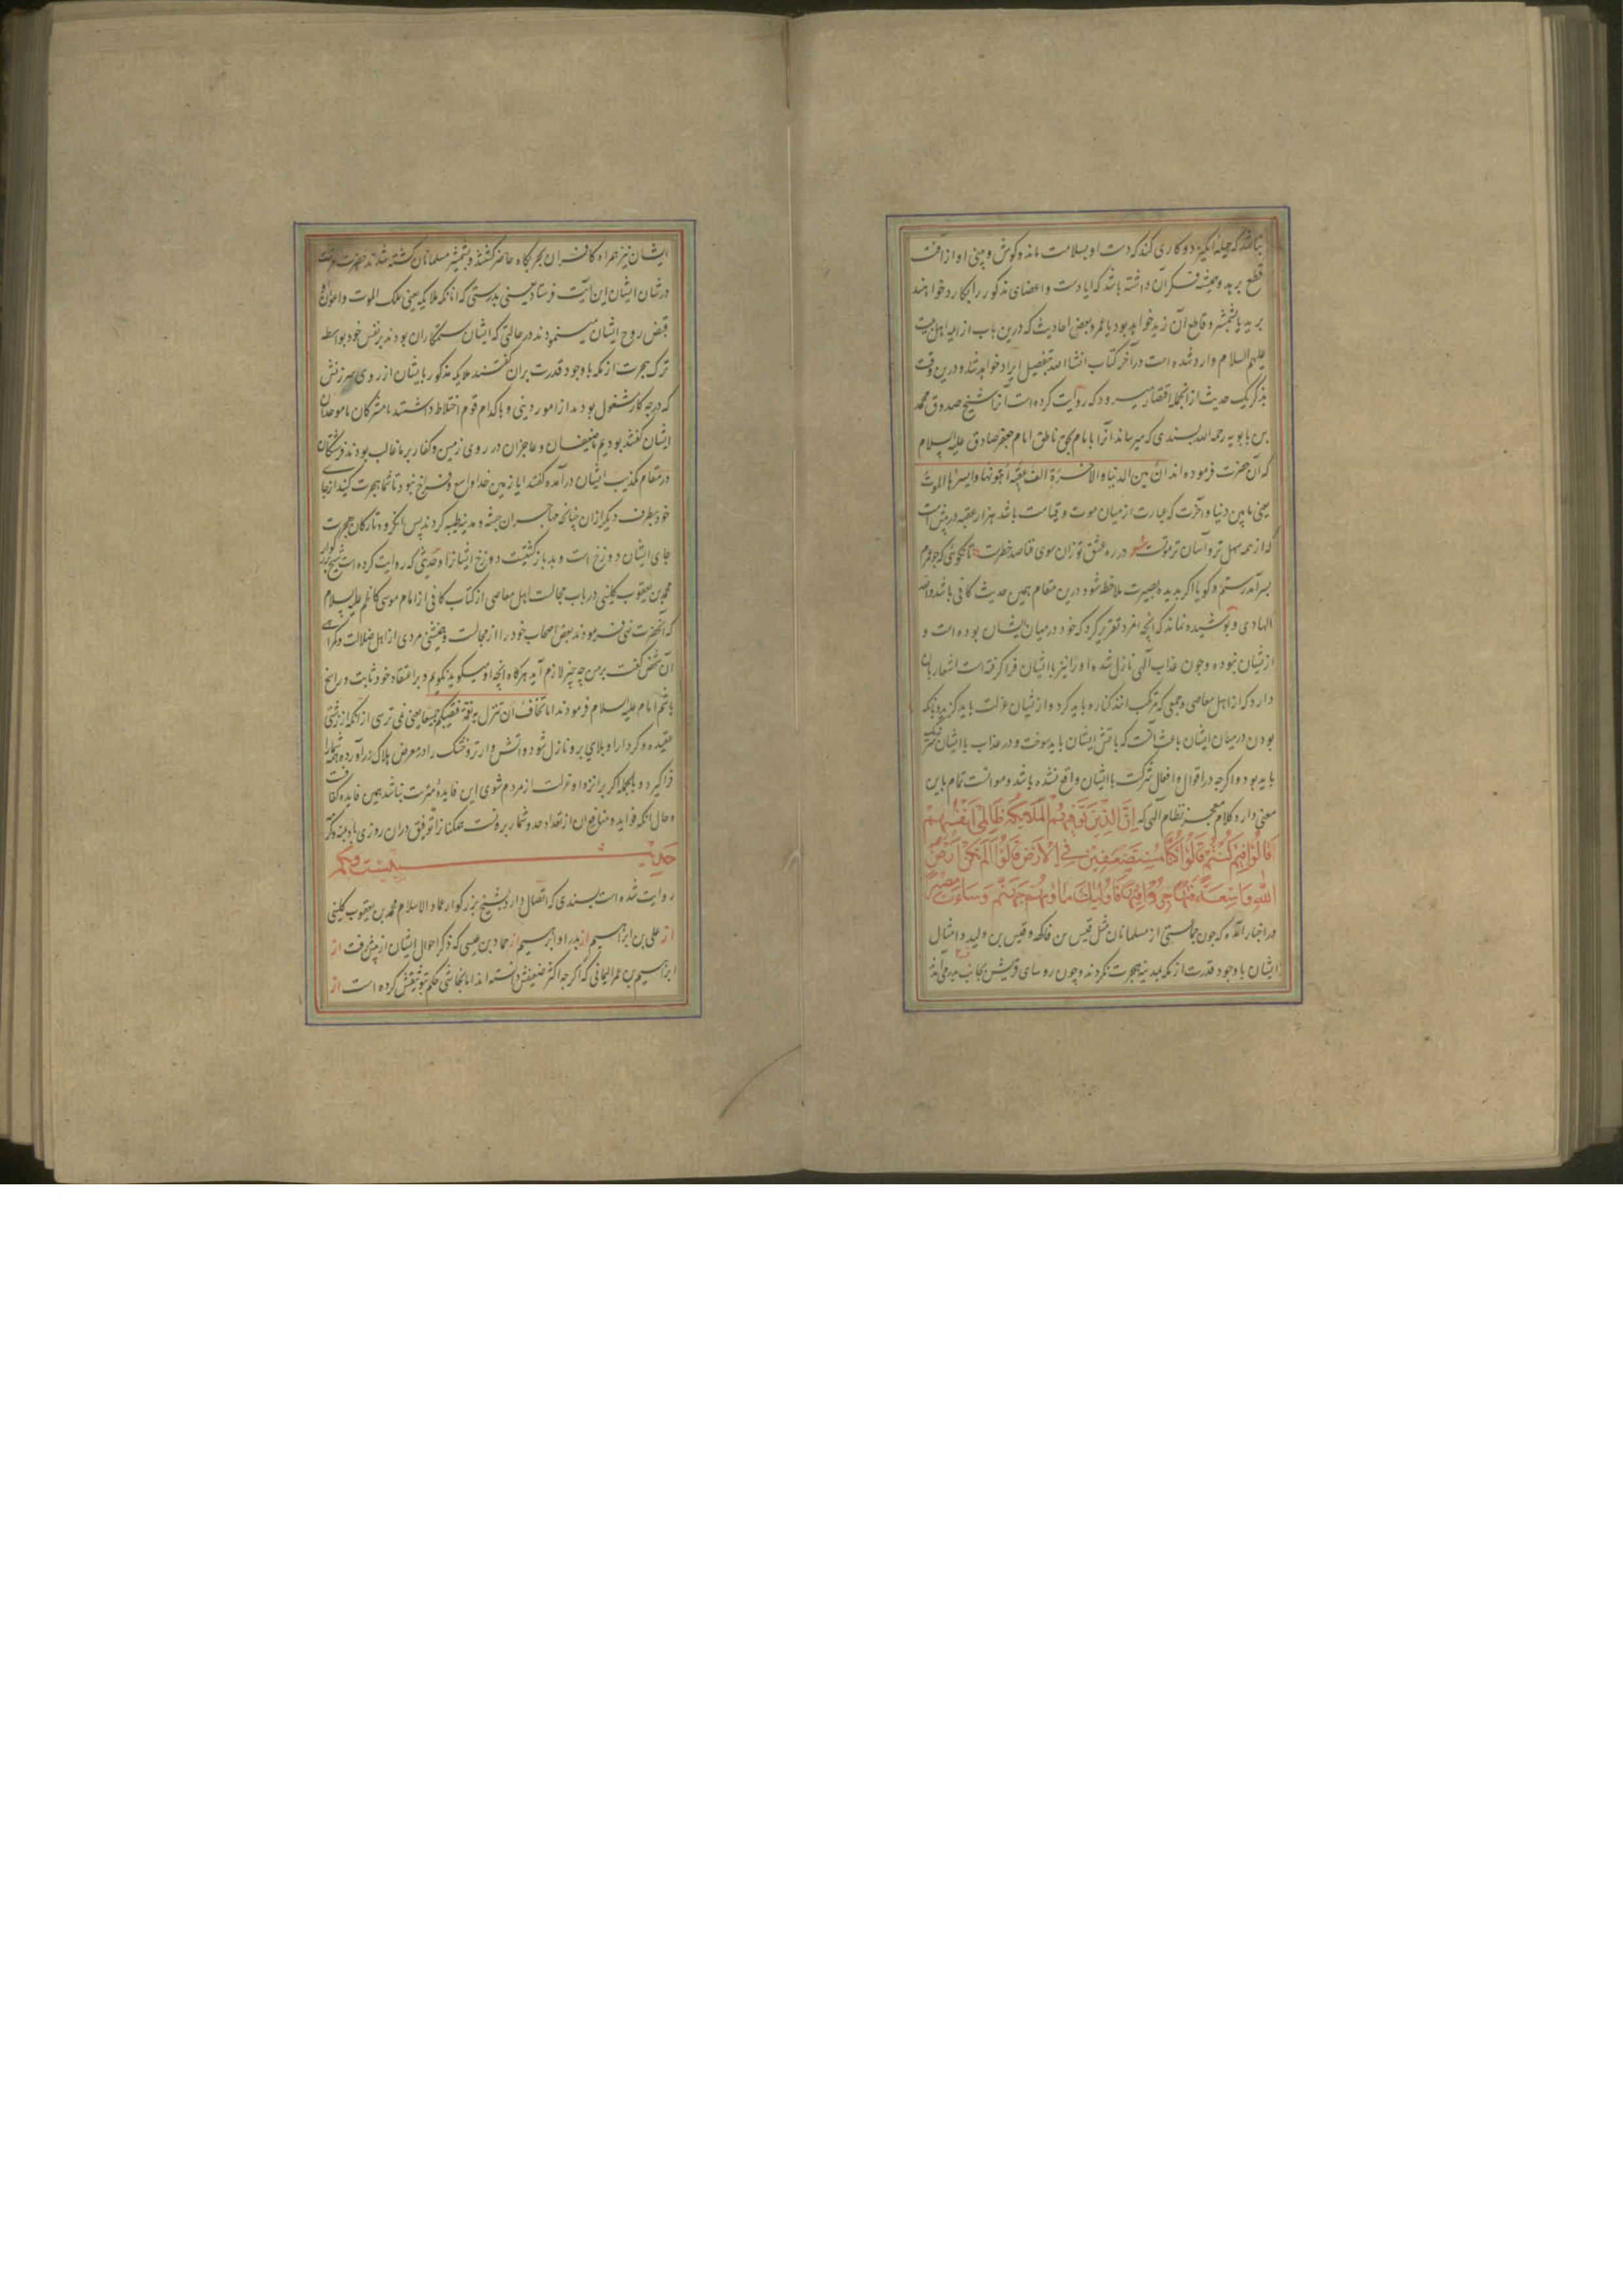 نباشد که حیله انگیزد و کاری کند که دست او بسلامت ماند و کوش و بینی او از آفت
قطع برهد و همیشه فکر آن داشته باشد که ایا دست و اعضای مذکور را بکارد خواهند
برید یا بشمشیر و قاطع آن زید خواهد بود یا عمرو و بعض احادیث که درین باب از ایمه اهل بیت
علیهم السلام وارد شده است در آخر کتاب انشا الله بتفصیل ایراد خواهد شد و درین وقت
بذکر یک حدیث از انجمله اقتصار میرود که روایت کرده است آنرا شیخ صدوق محمد
بن بابویه رحمه الله بسندی که میرساند آنرا بامام بحق ناطق امام جعفر صادق علیه السلام
که آن حضرت فرموده اند ان بین الدنیا والاخرة الف عقبة اهونها وایسرها الموت
یعنی مابین دنیا و آخرت که عبارت از میان موت و قیامت باشد هزار عقبه در پیش است
که از همه سهل تر و آسان تر موتست شعر در ره عشق تو زان سوی فنا صد خطرست تا نکوئی که جو عمرم
بسر آمد رستم و کویا اکر بدیده بصیرت ملاحظه شود درین مقام همین حدیث کافی باشد والله
الهادی و پوشیده نماند که انچه امرد تقریر کرد که خود در میان ایشان بوده است و
از یشان نبوده و جون عذاب آلهی نازل شده او را نیز با ایشان فرا کرفته است اشعار بان
دارد که از اهل معاصی و جمعی که مرتکب انند کناره باید کرد و از یشان عزلت باید کزید و بانکه
بودن در میان ایشان باعث آنست که باتش ایشان باید سوخت و در عذاب با ایشان شریک
باید بود و اکرجه در اقوال و افعال شرکت با ایشان واقع نشده باشد و موانست تمام باین
معنی دارد کلام معجز نظام آلهی که اِنَّ الَّذِینَ تَوَفّیهُمُ الْمَلائِکَةُ ظَالِمی اَنْفُسِهِمْ
قَالُوا فِیمَ کُنْتُمْ قَالُوا کُنَّا مُسْتَضْعَفِینَ فِی الْاَرْضِ قَالُوا اَلَمْ تَکُنْ اَرْضُ
اللّهِ وَاسِعَةً فَتُهَاجِرُوا فِیهَا فَاُولئِکَ مَأْوٰیهُمْ جَهَنَّمُ وَسَاءَتْ مَصِیرًا
و در اخبار آمده که جون جماعتی از مسلمانان مثل قیس بن فاکهه و قیس بن ولید و امثال
ایشان با وجود قدرت از مکه بمدینه هجرت نکردند و چون روسای قریش بجانب بدر می آمدند
ایشان نیز همراه کافران بحربکاه حاضر کشتند و بشمشیر مسلمانان کشته شدند حضرت عزت
در شان ایشان این آیت فرستاد یعنی بدرستی که انانکه ملایکه یعنی ملک الموت و اعوان او
قبض روح ایشان مینمودند در حالتی که ایشان ستمکاران بودند بر نفس خود بواسطه
ترک هجرت از مکه با وجود قدرت بران کفتند ملایکه مذکور بایشان از روی سرزنش
که در چه کار مشغول بودید از امور دینی و با کدام قوم اختلاط داشتید با مشرکان یا موحدان
ایشان کفتند بودیم ما ضعیفان و عاجزان در روی زمین و کفار بر ما غالب بودند فرشتکان
در مقام تکذیب ایشان در آمده کفتند ایا زمین خدا واسع و فراخ نبود تا شما هجرت کنید از جای
خود بطرف دیکر ازان چنانچه مهاجران حبشه و مدینه طیبه کردند پس انکروه تارکان هجرت
جای ایشان دوزخ است و بد بازکشتیست دوزخ ایشانرا و حدیثی که روایت کرده است شیخ بزرکوار
محمد بن یعقوب کلینی در باب مجالست اهل معاصی از کتاب کافی از امام موسی کاظم علیه السلام
که آنحضرت نهی فرمودند بعض اصحاب خود را از مجالست و همنشینی مردی از اهل ضلالت و کمراهی
آن شخص کفت بر من چه چیز لازم آید هرکاه انچه او میکوید نکویم و بر اعتقاد خود ثابت و راسخ
باشم امام علیه السلام فرمودند اما تخاف ان تنزل به نقمة فتصیبکم جمیعا یعنی نمی ترسی از آنکه از زشتی
عقیده و کردار او بلای برو نازل شود و آتش وار تر و خشک را در معرض هلاک در آورده همه شما را
فرا کیرد و بالجمله اکر بر انزوا و عزلت از مردم سوی این فایده مترتب نباشد همین فایده کفایت
و حال انکه فواید و منافع آن از تعداد حد و شمار برونست همکنانرا توفیق دران روزی باد بمنه و کرمه
حدیث بیست ویکم
روایت شده است بسندی که اتصال دارد بشیخ بزرکوار عماد الاسلام محمد بن یعقوب کلینی
از علی بن ابراهیم از پدر او ابراهیم از حماد بن عیسی که ذکر احوال ایشان از پیش رفت از
ابراهیم بن عمر الیمانی که اکرچه اکثر ضعیفش دانسته اند اما نجاشی حکم بتوثیقش کرده است از